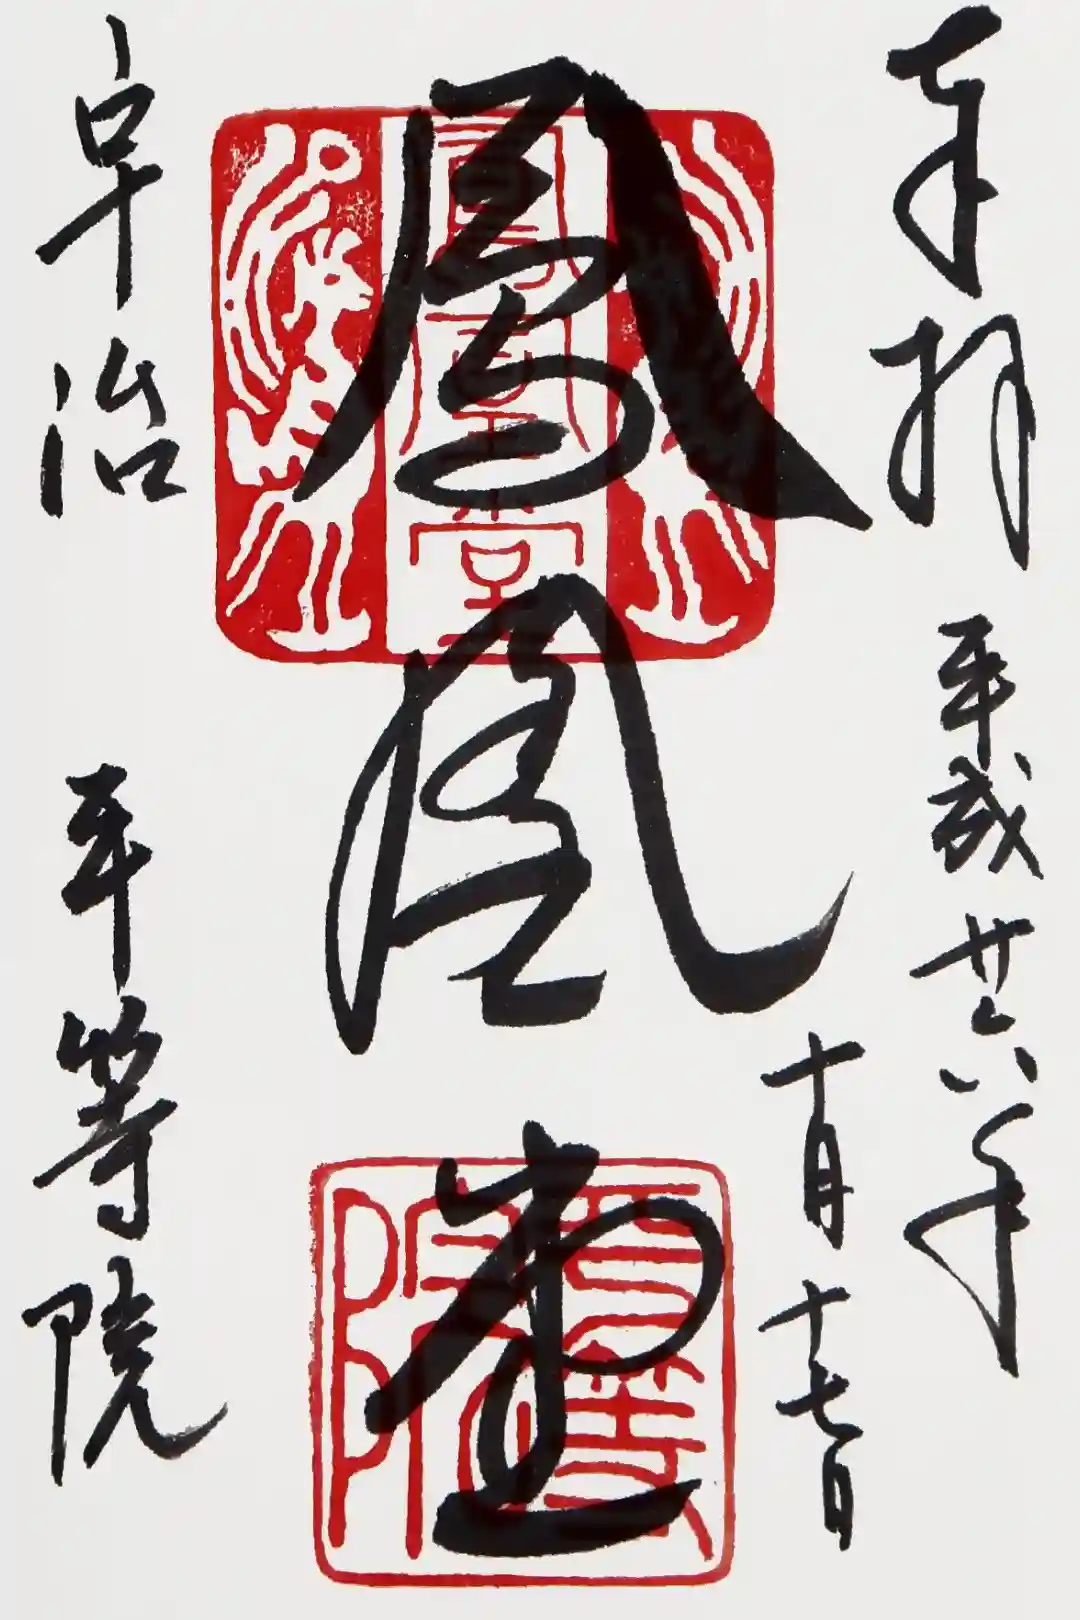 奉拝
平成廿六年
十月十七日
鳳凰堂
鳳凰堂
平等院
宇治
平等院